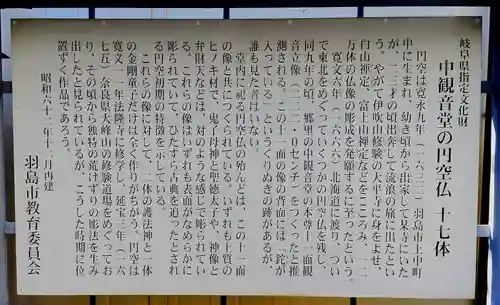 岐阜県指定文化財
中観音堂の円空仏 十七体
円空は寛永九年（一六三二）羽島市上中町
中に生まれ、幼き頃から出家して某寺にいた
が、二十三才の頃出奔して流浪の旅に出たとい
う。やがて伊吹山修験の太平寺に身をよせ、
白山禅定・富士山禅定などをこころみ、一二
万体の仏像の彫成を発願するに至ったという。
寛文六年（一六六六）北海道に渡り、つい
で東北をめぐっていくつかの円空仏を残し、
同九年の頃、郷里の中観音堂の本尊十一面観
音立像（二二二・〇センチ）をつくったと推
測される。この十一面の像の背面には、鉈が
入っている」というくりぬきの跡があるが、
誰も見た者はいない。
堂内に祀る円空仏の殆んどは、この十一面
の像と共につくられている。いずれも上質の
ヒノキ材で、鬼子母神と聖徳太子や、神像と
弁財天などは、対のような感じで彫られてい
る。これらの像はいずれも表面がなめらかに
彫られていて、ひたすら古典を追ったとされ
る円空初期の特徴を示している。
これらの像に対して、二体の護法神と一体
の金剛童子だけは全く作りがちがう。円空は
寛文一一年法隆寺に修学し、延宝三年（一六
七五）奈良県大峰山の修験道場をめぐってお
り、その頃から独特の荒けずりの彫法を生み
出したと見られているが、こうした時期に位
置ずく作品であろう。
昭和六十二年十一月再建
羽島市教育委員会